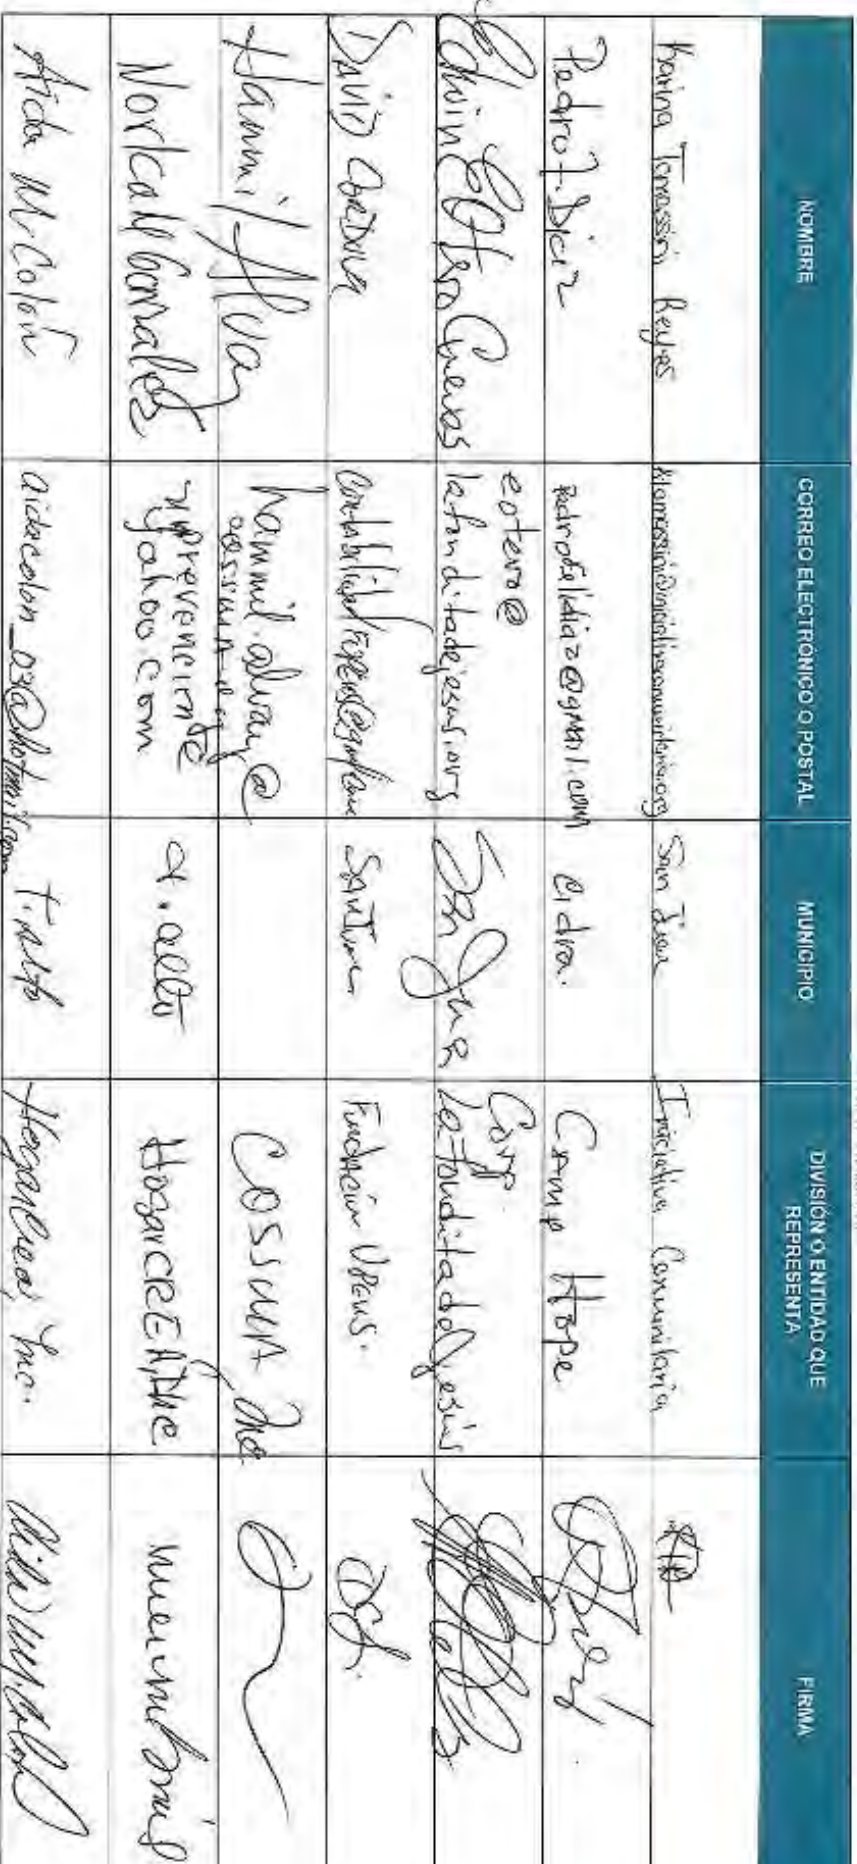 NOMBRE CORREO ELECTRÓNICO O POSTAL MUNICIPIO DIVISIÓN O ENTIDAD QUE REPRESENTA FIRMA
Karina Tomassini Reyes ktomassini@iniciativacomunitaria.org San Juan Iniciativa Comunitaria
Pedro F. Diaz pedrofelidiaz@gmail.com Cidra. Camp Hope
Edwin E Otero Cuevas eotero@ lafonditadejesus.org San Juan Corp. La Fondita de Jesús
David Cordova Santurce Fundación UPENS.
Hammil Alvar hammil.alvar@ COSSMA Inc
Gonzalez prevencion yahoo.com T. alto Hogar CREA, Inc
Aida M. Colón aidacolon_03@hotmail.com T. alto Hogar Crea, Inc.